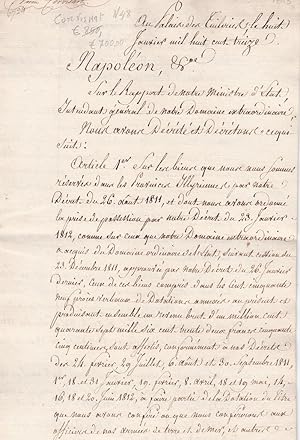 Au Palais des Tuileries, le huit
Janvier mil huit cent treize
Napoléon, &ca
Sur le Rapport de notre Ministre d'Etat,
Intendant général de notre Domaine extraordinaire
Nous avons Décrété et Décrétons ce qui
suit:
Article 1er Sur les biens que nous nous sommes
réservés dans les Provinces Illyriennes par notre
Décret du 26. août 1811, et dont nous avons ordonné
la prise de possession par notre Décret du 23. Janvier
1812, comme sur ceux que notre Domaine extraordinaire
a acquis du Domaine ordinaire de l'Etat, suivant cession du
23. Décembre 1811, approuvée par notre Décret du 26. Janvier
dernier, ceux de ces biens compris dans les cent cinquante
neuf procès verbaux de Dotations annexés au présent et
produisant ensemble un revenu brut d'un million, cent
quarante sept mille six cent trente deux francs cinquante
cinq centimes, sont affectés, conformément à nos Décrets
des 24. février, 29 Juillet, 6. août et 30 Septembre 1811,
1er, 18 et 31 Janvier, 19. février, 8. avril, 18 et 19 mai, 14.
16, 18 et 20. Juin 1812, à faire partie de la Dotation du titre
que nous avons conféré ou que nous conférerons aux
officiers de nos armées de terre et de mer, et autres de